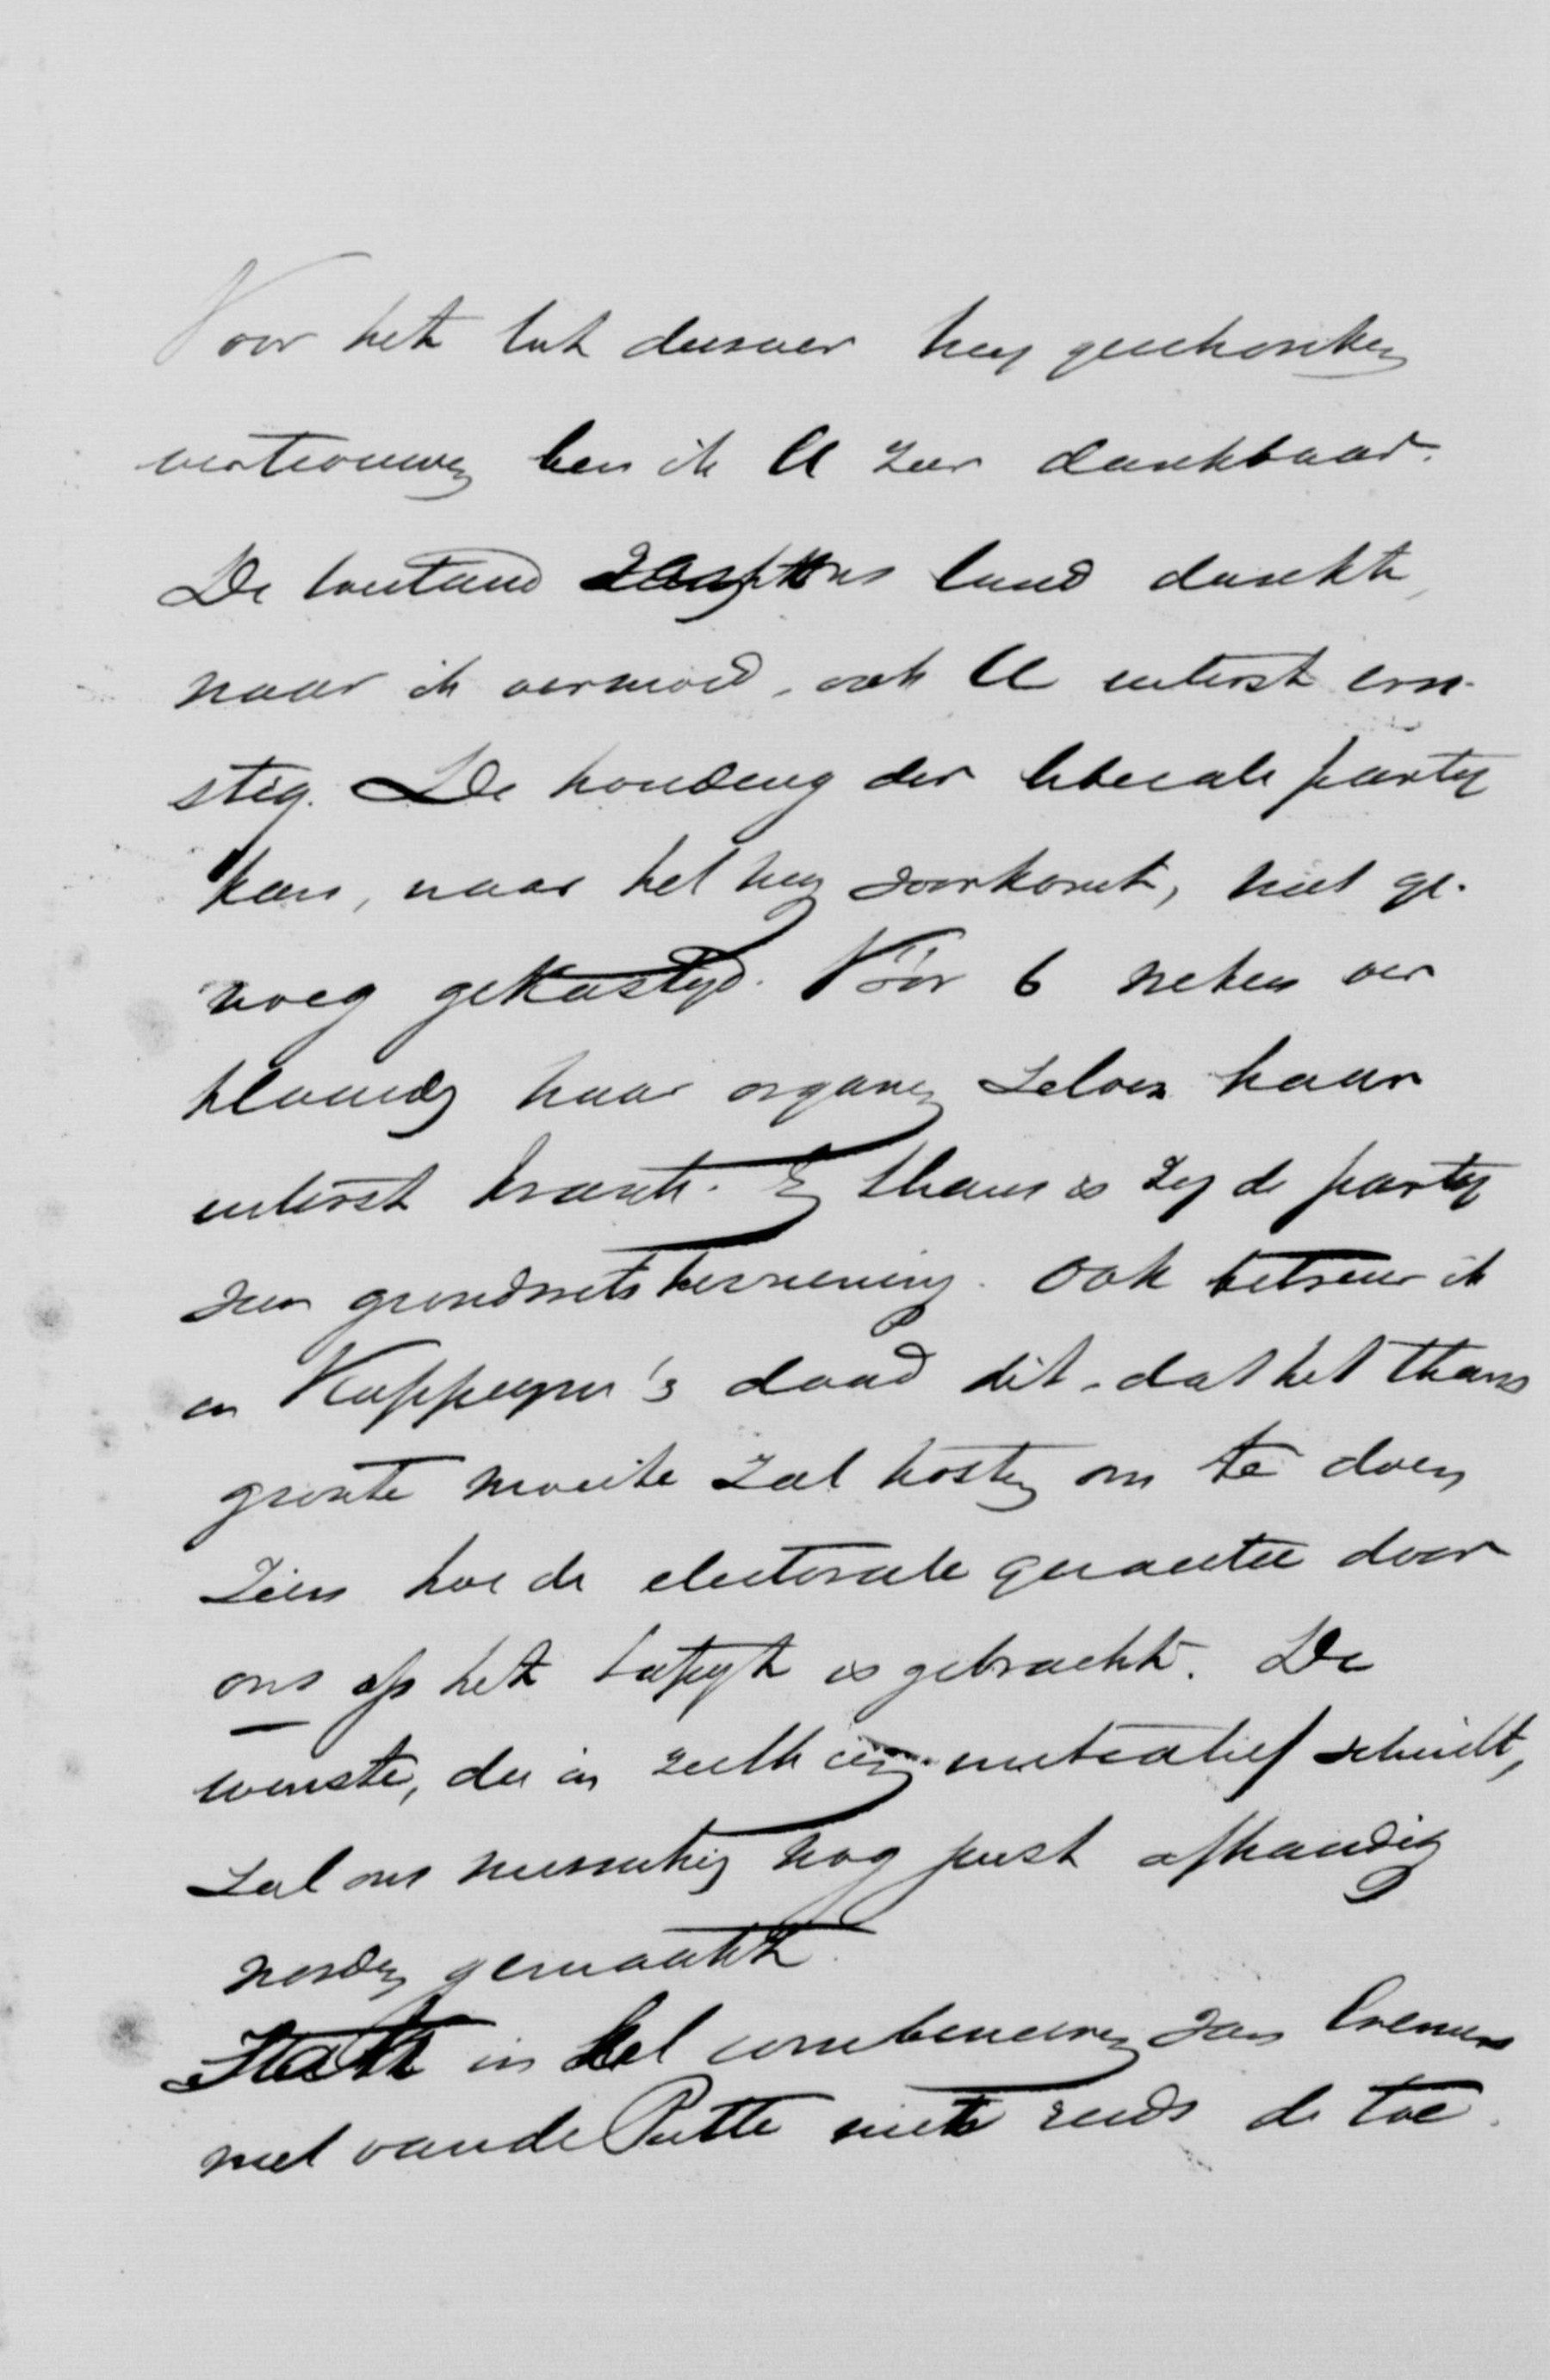 Voor het tot dusver mij geschonken
vertrouwen ben ik U zeer dankbaar.
De toestand van ons land dunkt,
naar ik vermoed, ook U uiterst ern-
stig. De houding der liberale partij
kan, naar het mij voorkomt, niet ge-
noeg gekastijd. Vóór 6 weken ver
klaarden haar organen zelven haar
uiterst krank. En thans is zij de partij
van grondwetsherziening. Ook betreur ik
in Kappeyne's daad dit, dat het thans
groote moeite zal kosten om te doen
zien hoe de electorale quaestie door
ons op het tapijt is gebracht. De
winste, die in zulk een initiatief schuilt,
zal ons misschien nog juist afhandig
worden gemaakt.
in het combineeren van Cremers
met van de Putte niet reeds de toe